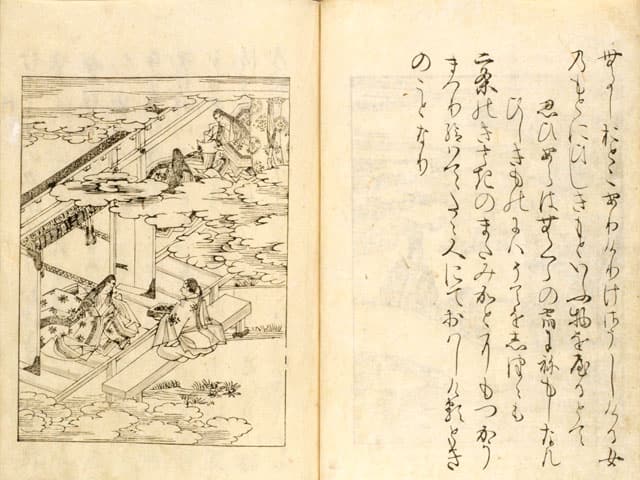 むかしおとこありけりけさうしける女
のもとにひしきもといふ物をやるとて
思ひあらはむくらの宿にねもしなん
ひしきものにはそてをしつゝも
二条のきさきのまたみかとにもつかう
まつり給はてたゝ人にておはしけるとき
のことなり